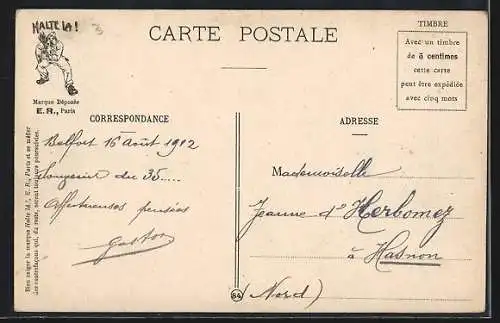 HALTE LA!
CARTE POSTALE
TIMBRE
Avec un timbre
de 5 centimes
cette carte
peut être expédiée
avec cinq mots
Marque Déposée
E. R., Paris
CORRESPONDANCE
ADRESSE
Belfort 16 Août 1912
Souvenir du 35....
Affectueuses pensées
Gaston
Mademoiselle
Jeanne d'Herbomez
à Hasnon
(Nord)
84
Bien exiger la marque Halte là!, E. R., Paris et se méfier
des contrefaçons qui, du reste, seront toujours poursuivies.